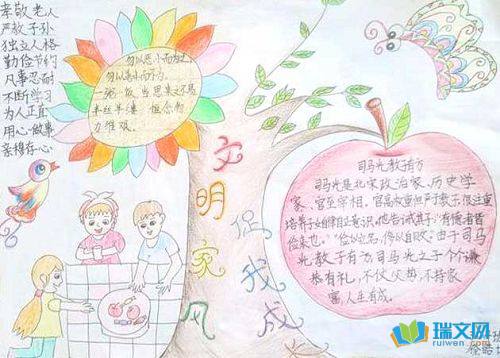 孝敬老人
严教子孙
独立人格
勤俭节约
凡事忍耐
不断学习
为人正直
用心做事
亲穆在心
勿以恶小而为之
勿以善小而不为
一粥一饭,当思来之不易
半丝半缕,恒念物
力维艰。
文明家风
促我成长
司马光教子有方
司马光是北宋政治家、历史学
家、官至宰相。官高权重但声于教子,很注重
培养子女律自主意识,他告诫其子:“有德者皆
俭来也。”“俭以立名,侈以自败。”由于司马
光教子有方司马光之子个个谦
恭有礼,不仗父势,不持家
富,人生有成。
瑞文网
ruiwen.com